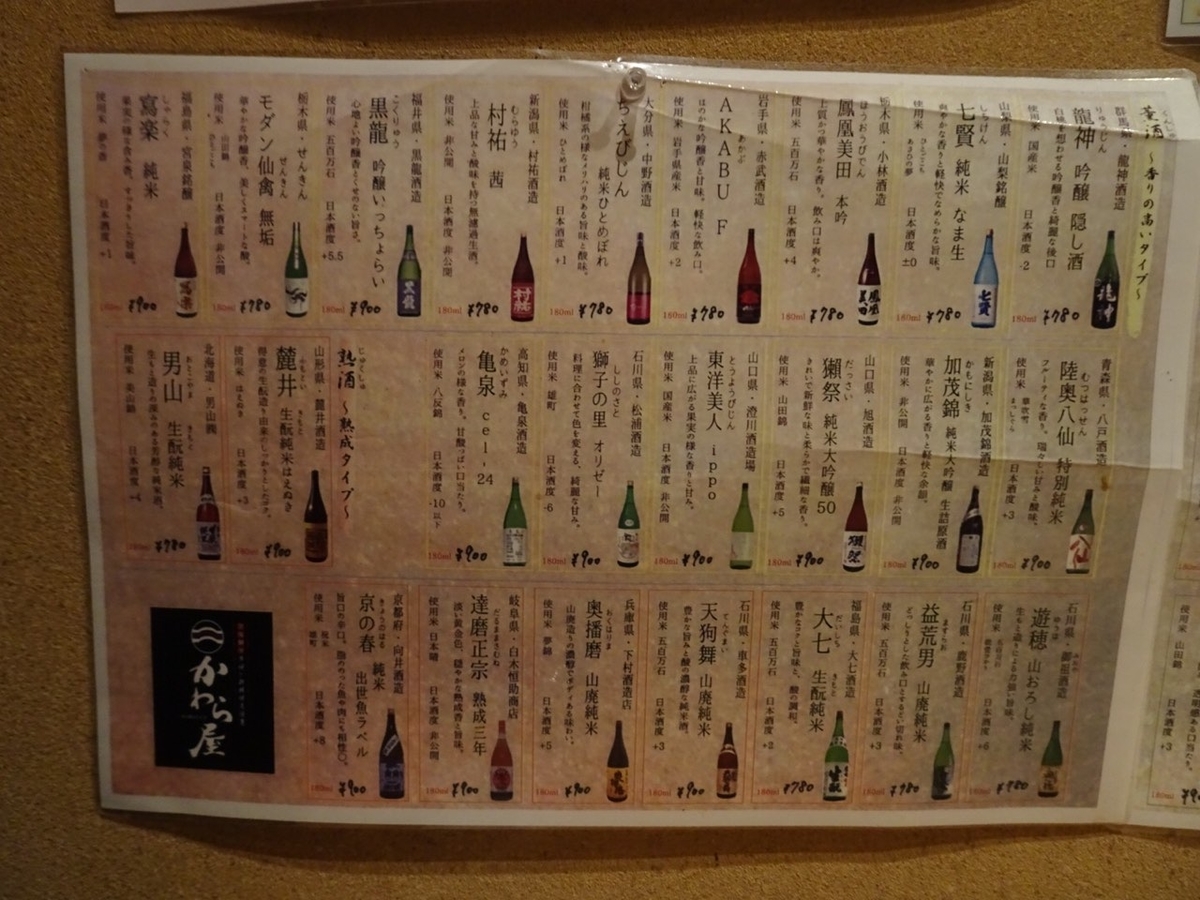 薫酒 ～香りの高いタイプ～
群馬県・龍神酒造
りゅうじん
龍神 吟醸 隠し酒
白桃を想わせる吟醸香と綺麗な後口
使用米 国産米 日本酒度 -2
180ml ¥780
山梨県・山梨銘醸
しちけん
七賢 純米 なま生
爽やかな香りと軽快でなめらかな旨味。
日本酒度 ±0
180ml ¥780
栃木県・小林酒造
ほうおうびでん
鳳凰美田 本吟
上質かつ華やかな香り。飲み口は爽やか。
使用米 五百万石 日本酒度 +4
180ml ¥780
岩手県・赤武酒造
あかぶ
AKABU F
ほのかな吟醸香と甘味。軽快な飲み口。
使用米 岩手県産米 日本酒度 +2
180ml ¥780
大分県・中野酒造
ちえびじん 純米ひとめぼれ
柑橘系の様なメリハリのある旨味と酸味。
使用米 ひとめぼれ 日本酒度 +1
180ml ¥780
新潟県・村祐酒造
むらゆう
村祐 茜
上品な甘みと酸味を持つ無濾過生酒。
使用米 非公開 日本酒度 非公開
180ml ¥780
福井県・黒龍酒造
こくりゅう
黒龍 吟醸いっちょらい
心地よい吟醸香とくせのない旨さ。
使用米 五百万石 日本酒度 +5.5
180ml ¥900
栃木県・せんきん
せんきん
モダン仙禽 無垢
華やかな吟醸香、美しくスマートな酸。
使用米 山田錦 ひとごこち 日本酒度 非公開
180ml ¥780
福島県・宮泉銘醸
しゃらく
寫楽 純米
果実の様な含み香。すっきりした旨味。
使用米 夢の香 日本酒度 +1
180ml ¥900
青森県・八戸酒造
むつはっせん
陸奥八仙 特別純米
フルーティな香り。瑞々しい甘みと酸味。
使用米 華吹雪 まっしぐら 日本酒度 +3
180ml ¥900
新潟県・加茂錦酒造
かもにしき
加茂錦 純米大吟醸 生詰原酒
華やかに広がる香りと軽快な余韻。
使用米 非公開 日本酒度 非公開
180ml ¥900
山口県・旭酒造
だっさい
獺祭 純米大吟醸 50
きれいで新鮮な味と柔らかで繊細な香り。
使用米 山田錦 日本酒度 +5
180ml ¥900
山口県・澄川酒造場
とうようびじん
東洋美人 ippo
上品に広がる果実の様な香りと甘み。
使用米 国産米 日本酒度 非公開
180ml ¥900
石川県・松浦酒造
ししのさと
獅子の里 オリゼー
料理に合わせて色を変える、綺麗な甘み。
使用米 雄町 日本酒度 -6
180ml ¥900
高知県・亀泉酒造
かめいずみ
亀泉 cel-24
メロンの様な香り。甘酸っぱい口当たり。
使用米 八反錦 日本酒度 -10以下
180ml ¥900
じゅくしゅ
熟酒 ～熟成タイプ～
山形県・麓井酒造
ふもとい きもと
麓井 生酛純米はえぬき
得意の生酛造り由来のしっかりとしたコク。
使用米 はえぬき 日本酒度 +3
180ml ¥900
北海道・男山㈱
おとこやま きもと
男山 生酛純米
生もと造りの深みのある芳醇な純米酒。
使用米 美山錦 日本酒度 +4
180ml ¥780
石川県・御祖酒造
ゆうほ
遊穂 山おろし純米
生もと造りによる力強い旨味。
日本酒度 +6
180ml ¥900
石川県・鹿野酒造
ますらお
益荒男 山廃純米
どっしりとした飲み口とするどい切れ味。
使用米 五百万石 日本酒度 +3
180ml ¥780
福島県・大七酒造
だいしち きもと
大七 生酛純米
豊かなコクと旨味と、酸の調和。
使用米 五百万石 日本酒度 +2
180ml ¥780
石川県・車多酒造
てんぐまい
天狗舞 山廃純米
豊かな旨みと酸の濃醇な純米酒。
使用米 五百万石 日本酒度 +3
180ml ¥900
兵庫県・下村酒造店
おくはりま
奥播磨 山廃純米
山廃造りの濃厚でボディある味わい。
使用米 夢錦 日本酒度 +5
180ml ¥900
岐阜県・白木恒助商店
だるままさむね
達磨正宗 熟成三年
淡い黄金色、穏やかな熟成香と旨味。
使用米 日本晴 日本酒度 非公開
180ml ¥900
京都府・向井酒造
きょうのはる
京の春 純米 出世魚ラベル
旨口の辛口。脂ののった魚や肉にも相性◎。
使用米 祝米 雄町 日本酒度 +8
180ml ¥900
かわら屋
使用米 山田錦
日本酒度 +3